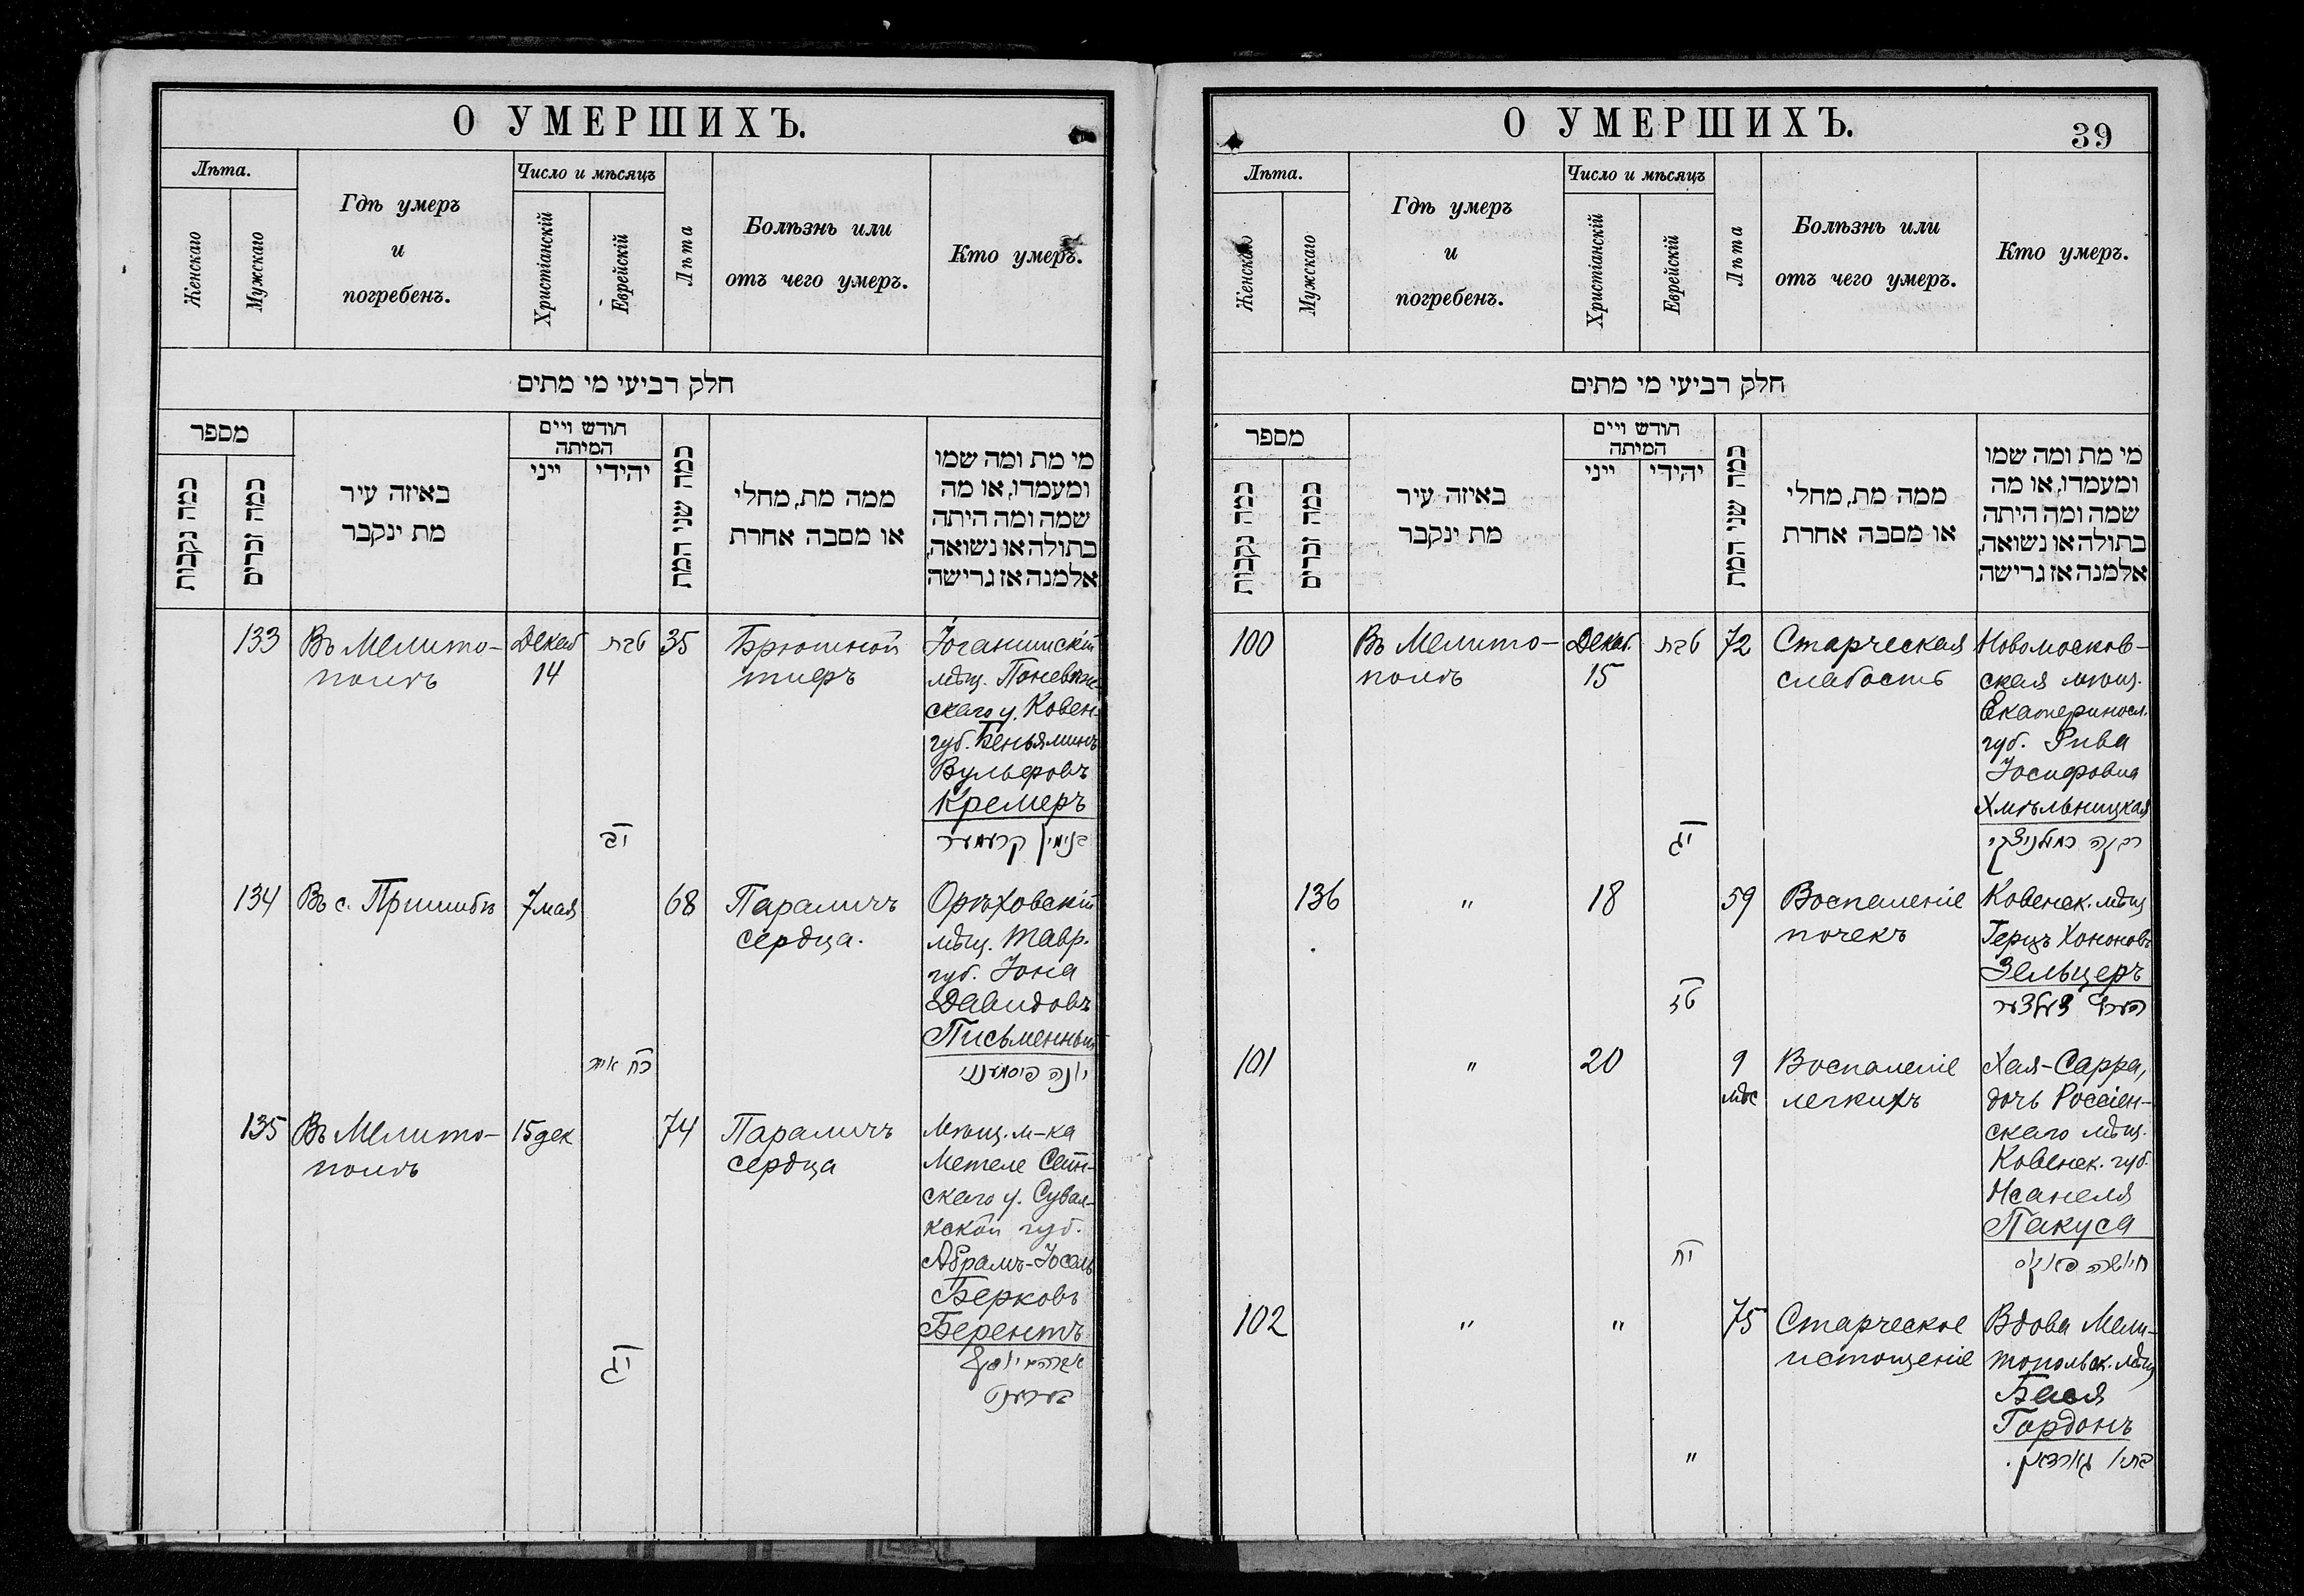 О УМЕРШИХЪ.
Лѣта.
Женскаго
Мужскаго
Гдѣ умеръ
и
погребенъ.
Число и мѣсяцъ
Христіанскій
Еврейскій
Лѣта
Болѣзнь или
отъ чего умеръ.
Кто умеръ.
חלק רביעי מי מתים
מספר
כמה נקבות
כמה זכרים
באיזה עיר
מת ינקבר
חודש ויים
המיתה
ייני
יהידי
כמה שני המת
ממה מת, מחלי
או מסבה אחרת
מי מת ומה שמו
ומעמדו, או מה
שמה ומה היתה
בתולה או נשואה,
אלמנה אז גרישה
133
Въ Мелито-
полѣ
Декаб
14
טבת
יב
35
Брюшной
тифъ
мѣщ. Поневѣж-
скаго у. Ковен.
губ. Беньяминъ
Вульфовъ
Кремеръ
בנימין קרעמער
134
Въ с. Пришибѣ
7 мая
כח אייר
68
Параличъ
сердца.
Орѣховскій
мѣщ. Тавр.
губ. Іона
Давидовъ
Письменный
יונה פיסמענני
135
Въ Мелито-
полѣ
15 дек
יג
74
Параличъ
сердца
Мѣщ. м-ка
Метеле Сейн-
скаго у. Сувал-
кской губ.
Абрамъ-Іосель
Берковъ
Берентъ
אברהם יוסף
בערענט
О УМЕРШИХЪ.
39
Лѣта.
Женскаго
Мужскаго
Гдѣ умеръ
и
погребенъ.
Число и мѣсяцъ
Христіанскій
Еврейскій
Лѣта
Болѣзнь или
отъ чего умеръ.
Кто умеръ.
חלק רביעי מי מתים
מספר
כמה נקבות
כמה זכרים
באיזה עיר
מת ינקבר
חודש ויים
המיתה
ייני
יהידי
כמה שני המת
ממה מת, מחלי
או מסבה אחרת
מי מת ומה שמו
ומעמדו, או מה
שמה ומה היתה
בתולה או נשואה,
אלמנה אז גרישה
100
Въ Мелито-
полѣ
Декаб.
15
טבת
יג
72
Старческая
слабость
Новомосков-
ская мѣщ.
Екатеринсл.
губ. Рива
Іосифовна
Хмѣльницкая
136
"
18
טז
59
Воспаленіе
почекъ
Ковенск. мѣщ
Герцъ Хононовъ
Зельцеръ
הערץ זעלצער
101
"
20
יח
9
мѣс
Воспаленіе
легкихъ
Хая-Сарра,
дочь Россіен-
скаго мѣщ.
Ковенск. губ.
Пакуса
102
"
"
"
75
Старческое
истощеніе
Вдова Мели-
топольск. мѣщ
Бася
Гордонъ